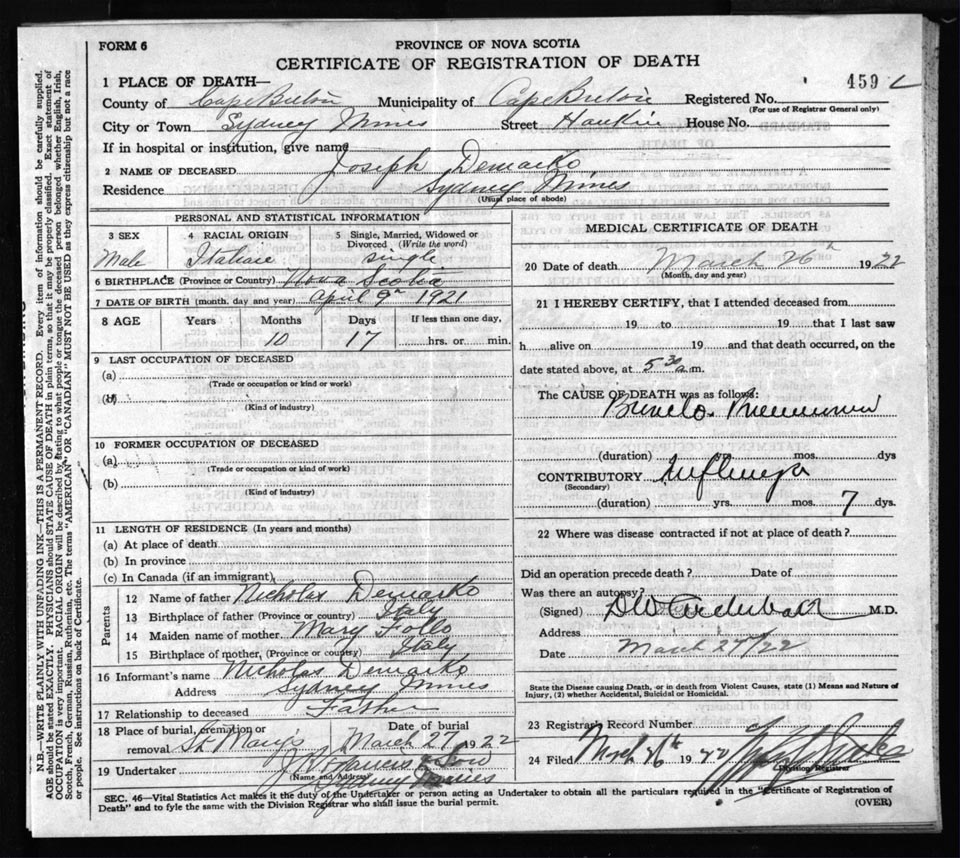 FORM 6
PROVINCE OF NOVA SCOTIA
CERTIFICATE OF REGISTRATION OF DEATH
459
1 PLACE OF DEATH—
County of Cape Breton Municipality of Cape Breton Registered No.
(For use of Registrar General only)
City or Town Sydney Mines Street House No.
If in hospital or institution, give name
2 NAME OF DECEASED Joseph Demarko
Residence Sydney Mines
(Usual place of abode)
PERSONAL AND STATISTICAL INFORMATION
3 SEX 4 RACIAL ORIGIN 5 Single, Married, Widowed or Divorced (Write the word)
Male Italian Single
6 BIRTHPLACE (Province or Country) Nova Scotia
7 DATE OF BIRTH (month, day and year) April 9th 1921
8 AGE Years Months Days If less than one day,
10 17 hrs. or min.
9 LAST OCCUPATION OF DECEASED
(a)
(Trade or occupation or kind or work)
(b)
(Kind of industry)
10 FORMER OCCUPATION OF DECEASED
(a)
(Trade or occupation or kind or work)
(b)
(Kind of industry)
11 LENGTH OF RESIDENCE (In years and months)
(a) At place of death
(b) In province
(c) In Canada (if an immigrant)
Parents
12 Name of father Nicholas Demarko
13 Birthplace of father (Province or country) Italy
14 Maiden name of mother Mary Follo
15 Birthplace of mother, (Province or country) Italy
16 Informant's name Nicholas Demarko
Address Sydney Mines
17 Relationship to deceased Father
18 Place of burial, cremation or Date of burial
removal St Mary's March 27 1922
19 Undertaker & Son
(Name and Address) Sydney Mines
MEDICAL CERTIFICATE OF DEATH
20 Date of death March 26th 1922
(Month, day and year)
21 I HEREBY CERTIFY, that I attended deceased from
19 to 19 that I last saw
h alive on 19 and that death occurred, on the
date stated above, at 5 30 a.m.
The CAUSE OF DEATH was as follows:
(duration) yrs. mos. dys
CONTRIBUTORY Influenza
(Secondary)
(duration) yrs. mos. 7 dys.
22 Where was disease contracted if not at place of death?
Did an operation precede death? Date of
Was there an autopsy?
(Signed) M.D.
Address
Date March 27/22
State the Disease causing Death, or in death from Violent Causes, state (1) Means and Nature of
Injury, (2) whether Accidental, Suicidal or Homicidal.
23 Registrar's Record Number
24 Filed March 26th 19
Division Registrar
SEC. 46—Vital Statistics Act makes it the duty of the Undertaker or person acting as Undertaker to obtain all the particulars required in the "Certificate of Registration of
Death" and to fyle the same with the Division Registrar who shall issue the burial permit.
(OVER)
N.B.—WRITE PLAINLY WITH UNFADING INK—THIS IS A PERMANENT RECORD. Every item of information should be carefully supplied.
AGE should be stated EXACTLY. PHYSICIANS should STATE CAUSE OF DEATH in plain terms, so that it may be properly classified. Exact statement of
OCCUPATION is very important. RACIAL ORIGIN will be described by stating to what people or tongue the deceased person belonged, whether English, Irish,
Scotch, French, German, Russian, Ruthenian, etc. The terms "AMERICAN" OR "CANADIAN" MUST NOT BE USED as they express citizenship but not a race
or people. See instructions on back of Certificate.